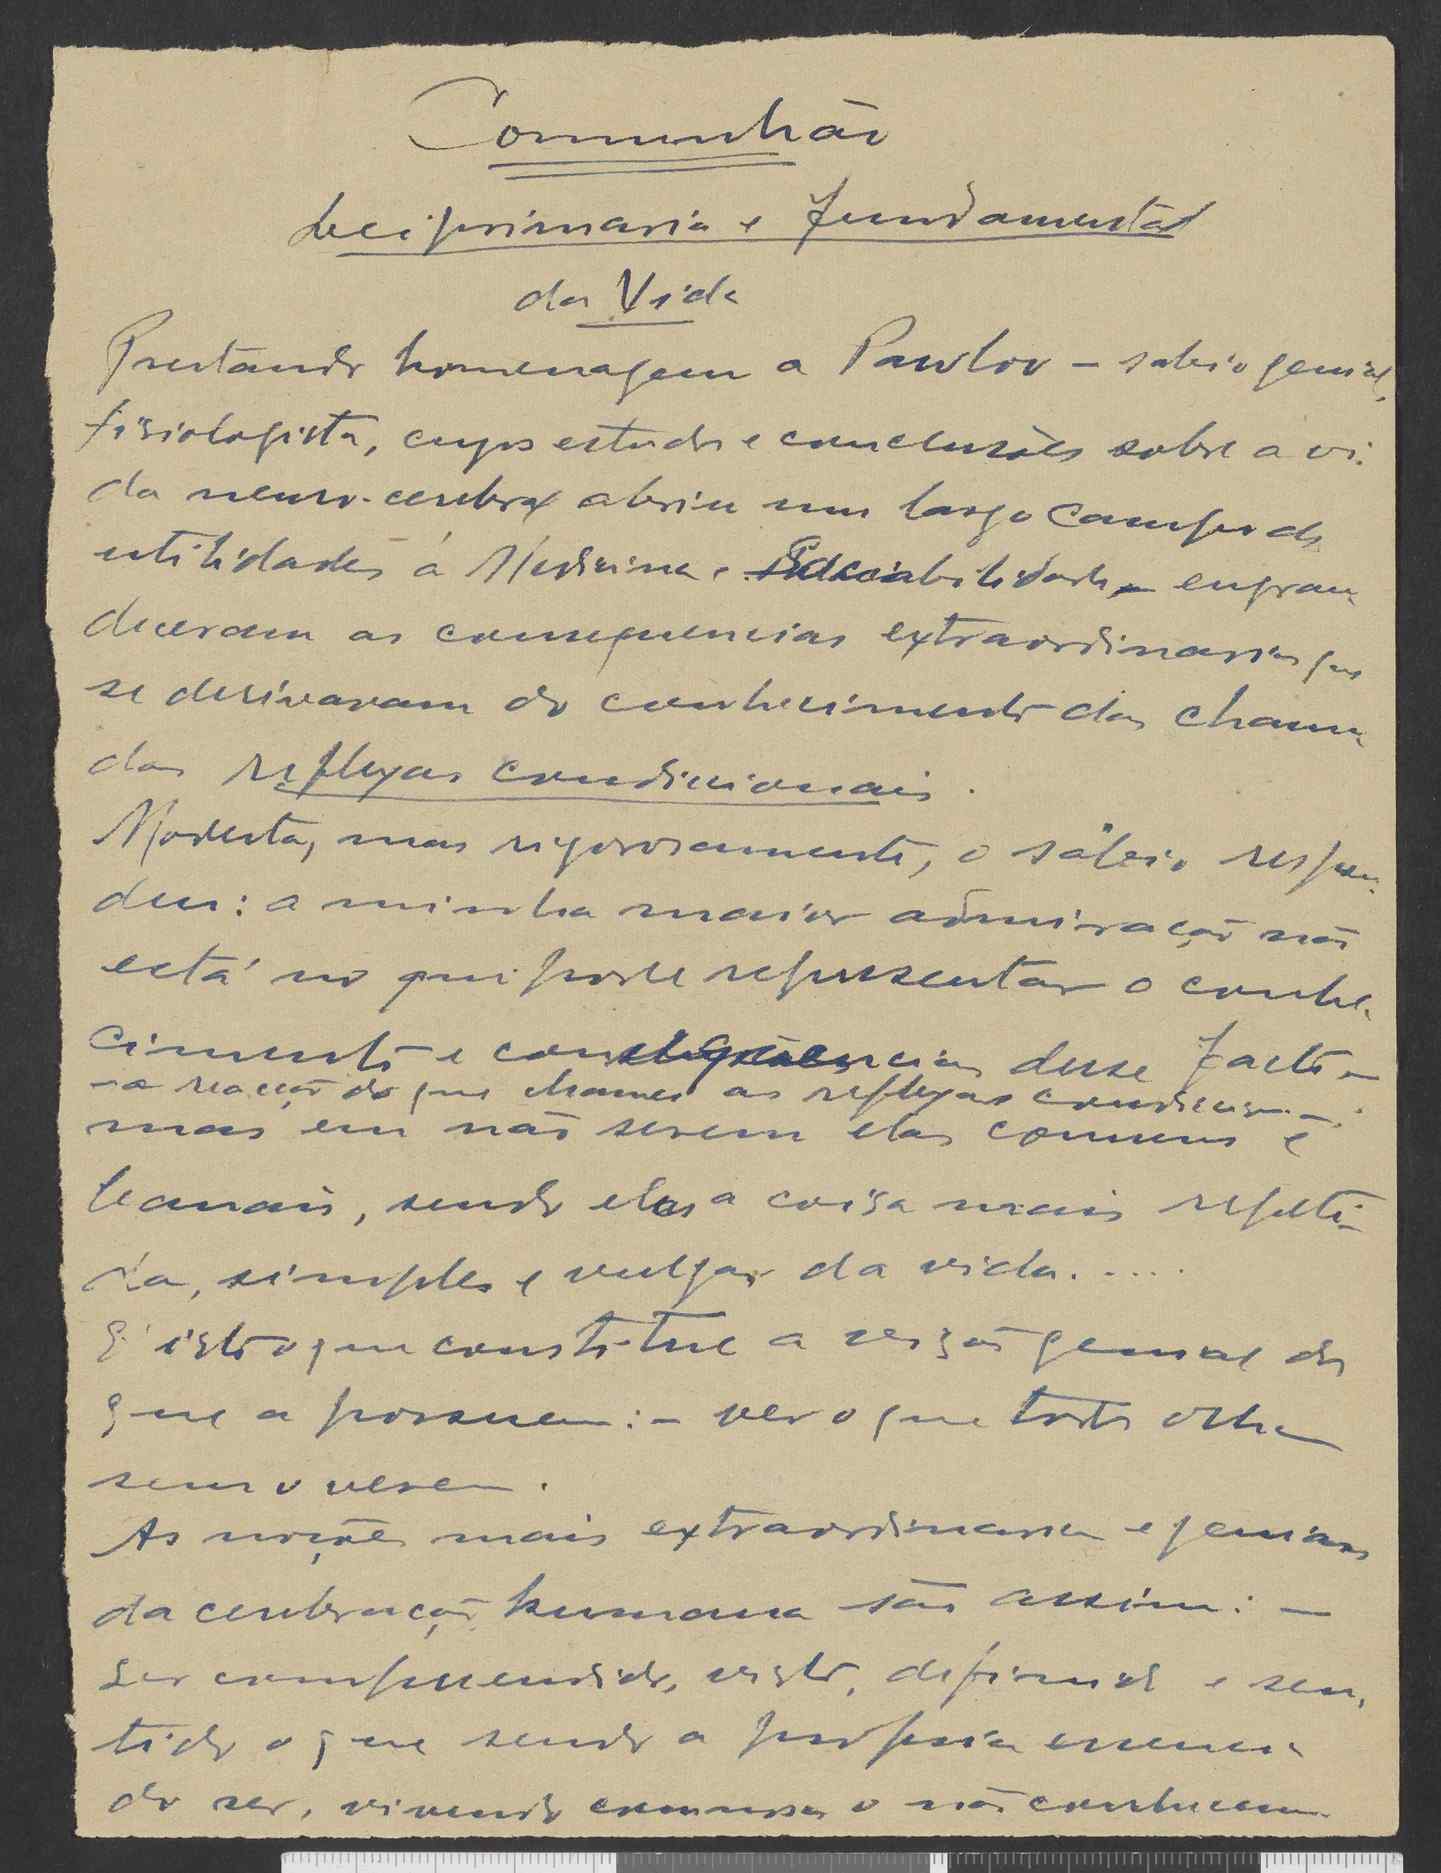 Comunhão
Lei primaria e fundamental
da Vida
Prestando homenagem a Pawlov – sabio genial,
fisiologista, cujos estudos e conclusões sobre a vi-
da neuro-cerebral abriu um largo campo de
utilidades á Medicina e Sociabilidade – engran-
deceram as consequencias extraordinarias que
se derivavam do conhecimento das chama-
das reflexas condicionais.
Modesta, mas rigorosamente, o sábio respon-
deu: a minha maior admiração não
está no que pode representar o conhe-
cimento e consequencias desse facto –
na reacção do que chamei as reflexas condicion. –
mas em não serem elas comuns e
banais, sendo elas a coisa mais repeti-
da, simples e vulgar da vida.....
E' isto o que constitue a visão genial dos
que a possuem: – ver o que todos olham
sem o verem.
As noções mais extraordinarias e geniais
da cerebração humana são assim: –
Ser compreendido, visto, definido e sen-
tido o que sendo a propria essencia
do ser, vivendo connosco o não conhecemos.